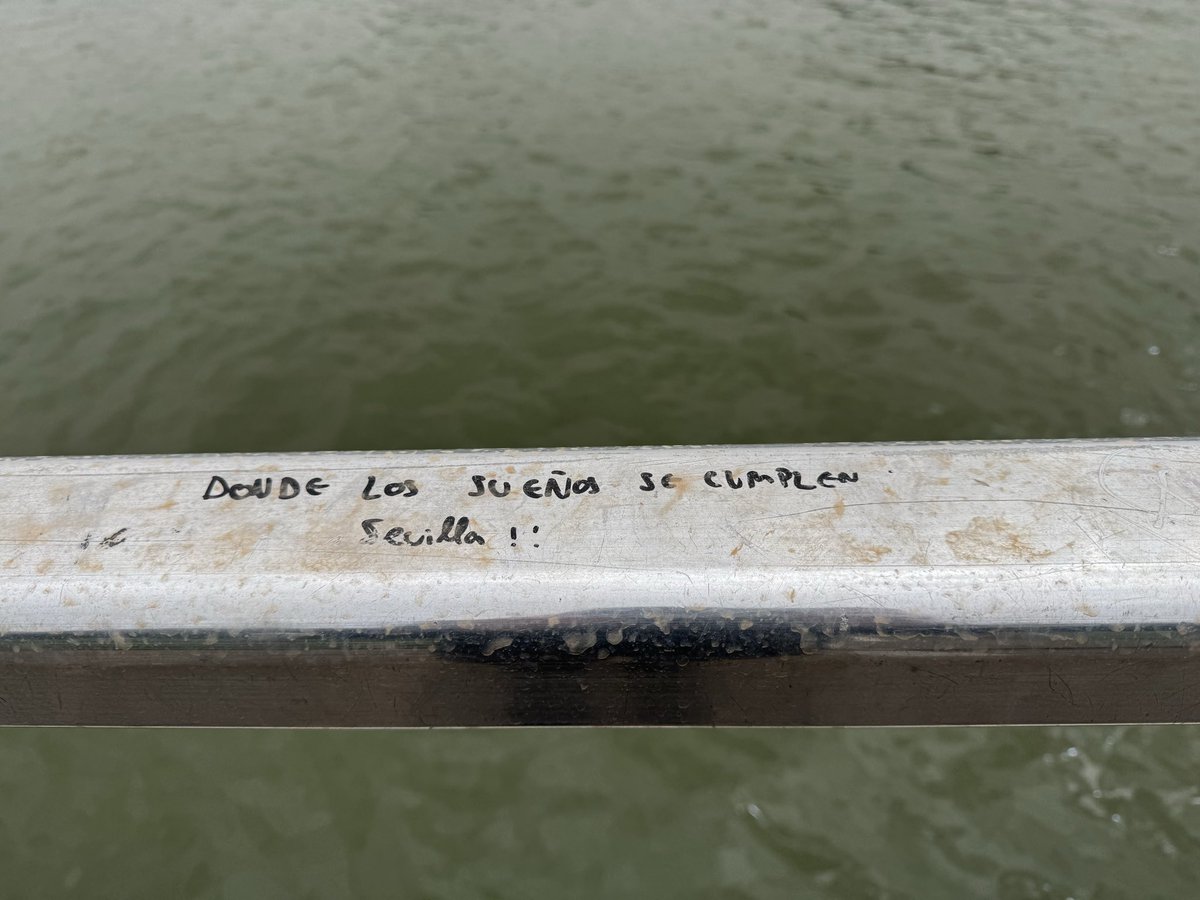 DONDE LOS SUEÑOS SE CUMPLEN
Sevilla !!